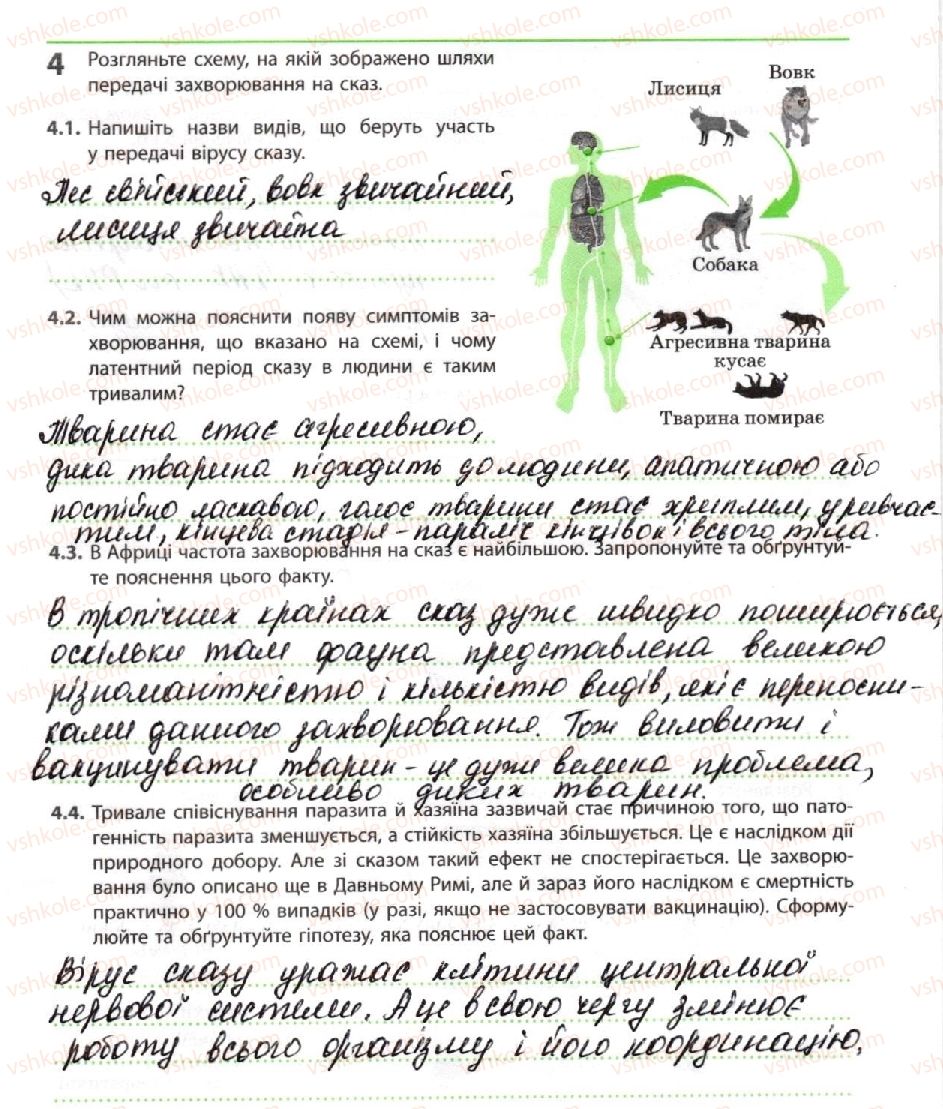 4 Розгляньте схему, на якій зображено шляхи
передачі захворювання на сказ.
Лисиця
Вовк
Собака
Агресивна тварина
кусає
Тварина помирає
4.1. Напишіть назви видів, що беруть участь
у передачі вірусу сказу.
Пес свійський, вовк звичайний,
лисиця звичайна
4.2. Чим можна пояснити появу симптомів за-
хворювання, що вказано на схемі, і чому
латентний період сказу в людини є таким
тривалим?
Тварина стає агресивною,
дика тварина підходить до людини, апатичною або
постійно ласкавою, голос тварини стає хриплим, уривчас-
тим, кінцева стадія - параліч кінцівок і всього тіла.
4.3. В Африці частота захворювання на сказ є найбільшою. Запропонуйте та обґрунтуй-
те пояснення цього факту.
В тропічних країнах сказ дуже швидко поширюється,
оскільки там фауна представлена великою
різноманітністю і кількістю видів, які є переносни-
ками данного захворювання. Тож виловити і
вакцинувати тварин - це дуже велика проблема,
особливо диких тварин.
4.4. Тривале співіснування паразита й хазяїна зазвичай стає причиною того, що пато-
генність паразита зменшується, а стійкість хазяїна збільшується. Це є наслідком дії
природного добору. Але зі сказом такий ефект не спостерігається. Це захворю-
вання було описано ще в Давньому Римі, але й зараз його наслідком є смертність
практично у 100 % випадків (у разі, якщо не застосовувати вакцинацію). Сформу-
люйте та обґрунтуйте гіпотезу, яка пояснює цей факт.
Вірус сказу уражає клітини центральної
нервової системи. А це в свою чергу змінює
роботу всього організму і його координацію.
vshkole.com